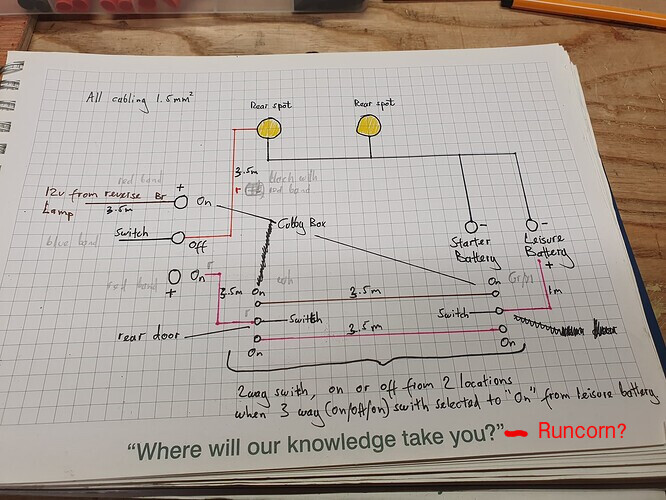 All cabling 1.5mm²
Rear spot
Rear spot
red band
3.5m
black with
red band
12v from reverse Br
Lamp
3.5m
+
On
Switch
Off
blue band
Cubby Box
Starter
Battery
-
Leisure
Battery
-
+
red band
On
+
r
3.5m
On
3.5m
On
1m
r
Switch
Switch
rear door
3.5m
On
On
2way swith, on or off from 2 locations
when 3 way (on/off/on) swith selected to "On" from leisure battery
“Where will our knowledge take you?” Runcorn?